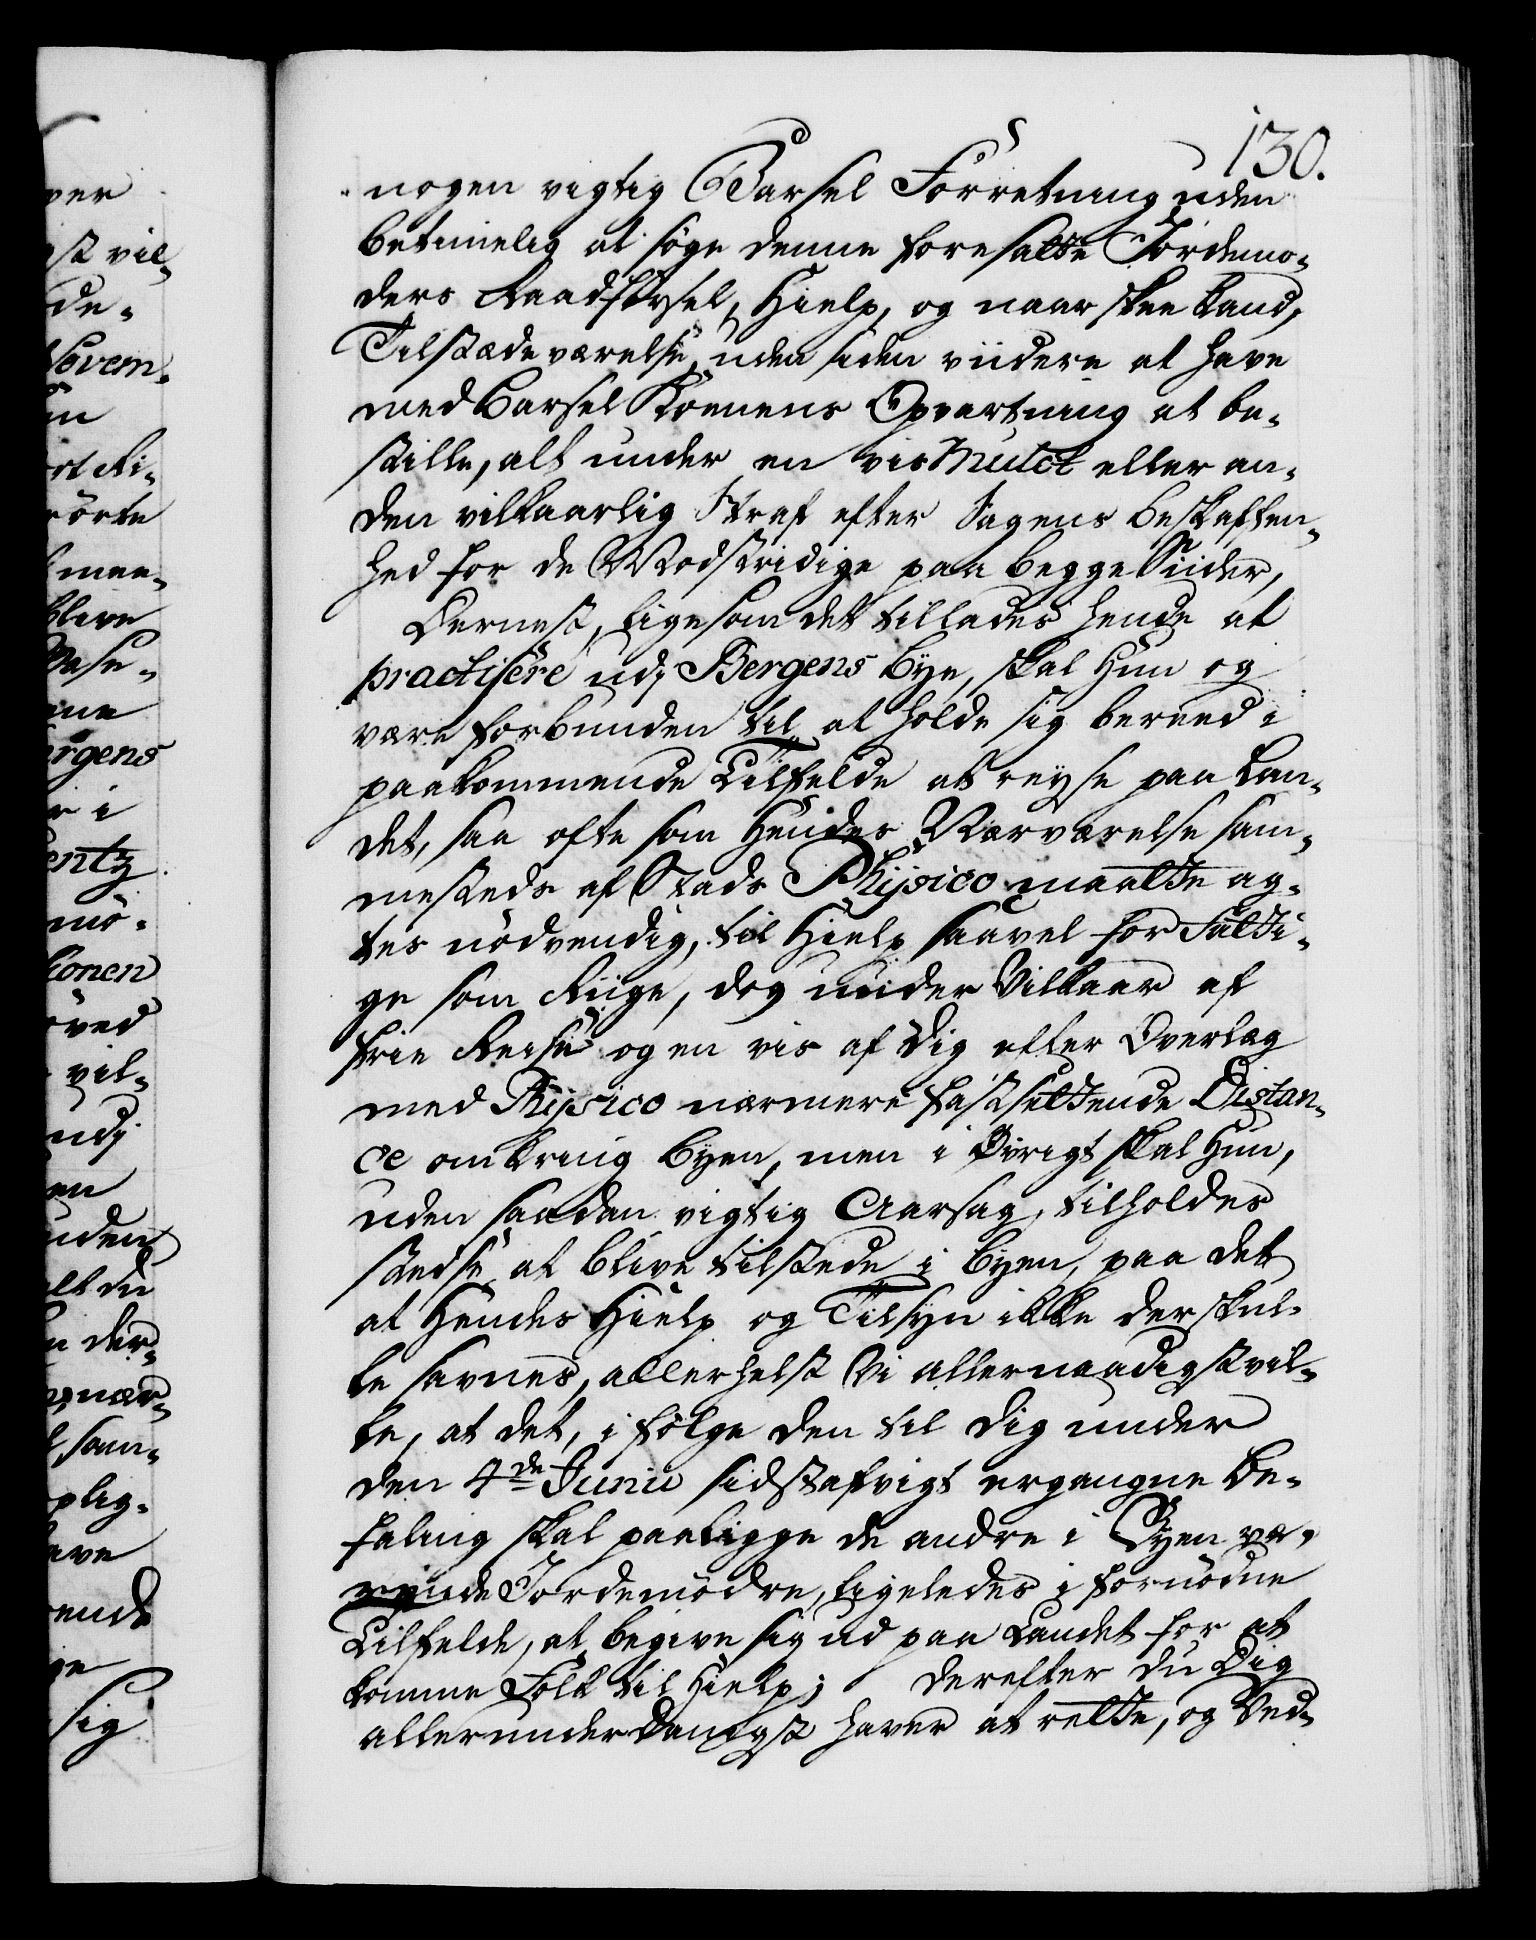 130.
nogen vigtig Barsel Forretning uden
betimelig at søge denne foresatte Jordemo¬
ders Raadførsel, Hielp, og naar skee kand,
Tilstædeværelse, uden siden viidere at have
med Barsel Konens Opvartning at be¬
stille, alt under en vis Mulct eller an¬
den vilkaarlig Straf efter Sagens Beskaffen¬
hed for de Modstridige paa begge Siider,
Dernest, ligesom det tillades hende at
practisere udj Bergens Bye, skal Hun og
være forbunden til at holde sig bereed i
paakommende Tilfelde at reyse paa Lan¬
det, saa ofte som Hendes Nærværelse sam¬
mesteds af Stads Physico maatte ag¬
tes nødvendig, til Hielp saavel for Fatti¬
ge som Riige, dog under Vilkaar af
frie Reise og en vis af Dig efter Overlæg
med Physico nærmere fastsettende Distan¬
ce omkring Byen, men i Øvrigt skal Hun,
uden saadan vigtig Aarsag, tilholdes
stedse at blive tilstede i Byen, paa det
at Hendes Hielp og Tilsyn ikke der skul¬
le savnes, allerhelst Vi allernaadigst vil¬
le, at det, i følge den til Dig under
den 4de Junii sidstafvigt ergangne Be¬
faling skal paaligge de andre i Byen væ¬
rende Jordemødre, ligeledes i fornødne
Tilfelde, at begive sig ud paa Landet for at
komme Folk til Hielp; Derefter du Dig
allerunderdanigst haver at rette, og Ved¬
ver
st vil¬
de¬
Novem¬
en
rt Ri¬
rörte
mee¬
blive
Base¬
ene
ergens
r i
entz
mö¬
Konen
oved
vil¬
udj
en
uden
alt du
n der¬
nær¬
sam¬
plig¬
ave
ende
ge
sig